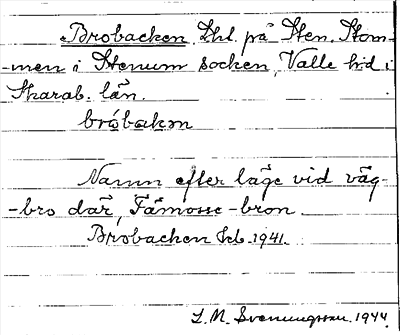 Brobacken. Lht. på Sten. Stom-
-men i Stenum socken, Valle hd i
Skarab. län.
bróbakɱ
Namn efter läge vid väg-
-bro där, Fämosse-bron.
Brobacken Lht. 1941.
L. M. Svenungsson. 1944.